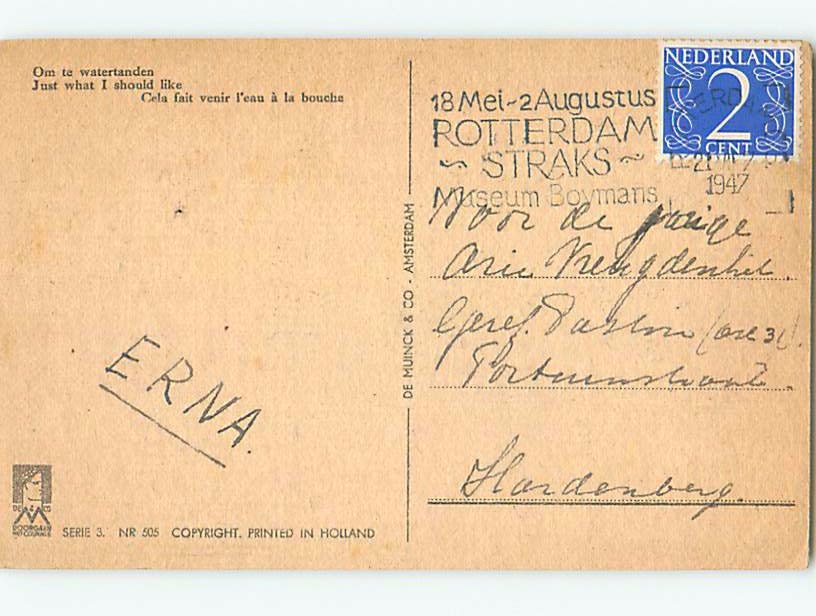 Om te watertanden
Just what I should like
Cela fait venir l'eau à la bouche
NEDERLAND
2
CENT
18 Mei - 2 Augustus
ROTTERDAM
~ STRAKS ~
Museum Boymans
1947
Voor de jarige
Arie Vreugdenhil.
Geref. Pastorie
Hardenberg.
ERNA.
DE MUINCK & CO - AMSTERDAM
SERIE 3. NR 505 COPYRIGHT. PRINTED IN HOLLAND